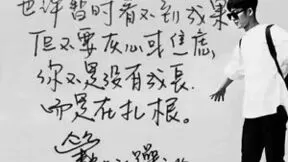 也许暂时看不到成果
但不要灰心或焦虑,
你不是没有成長,
而是在扎根。